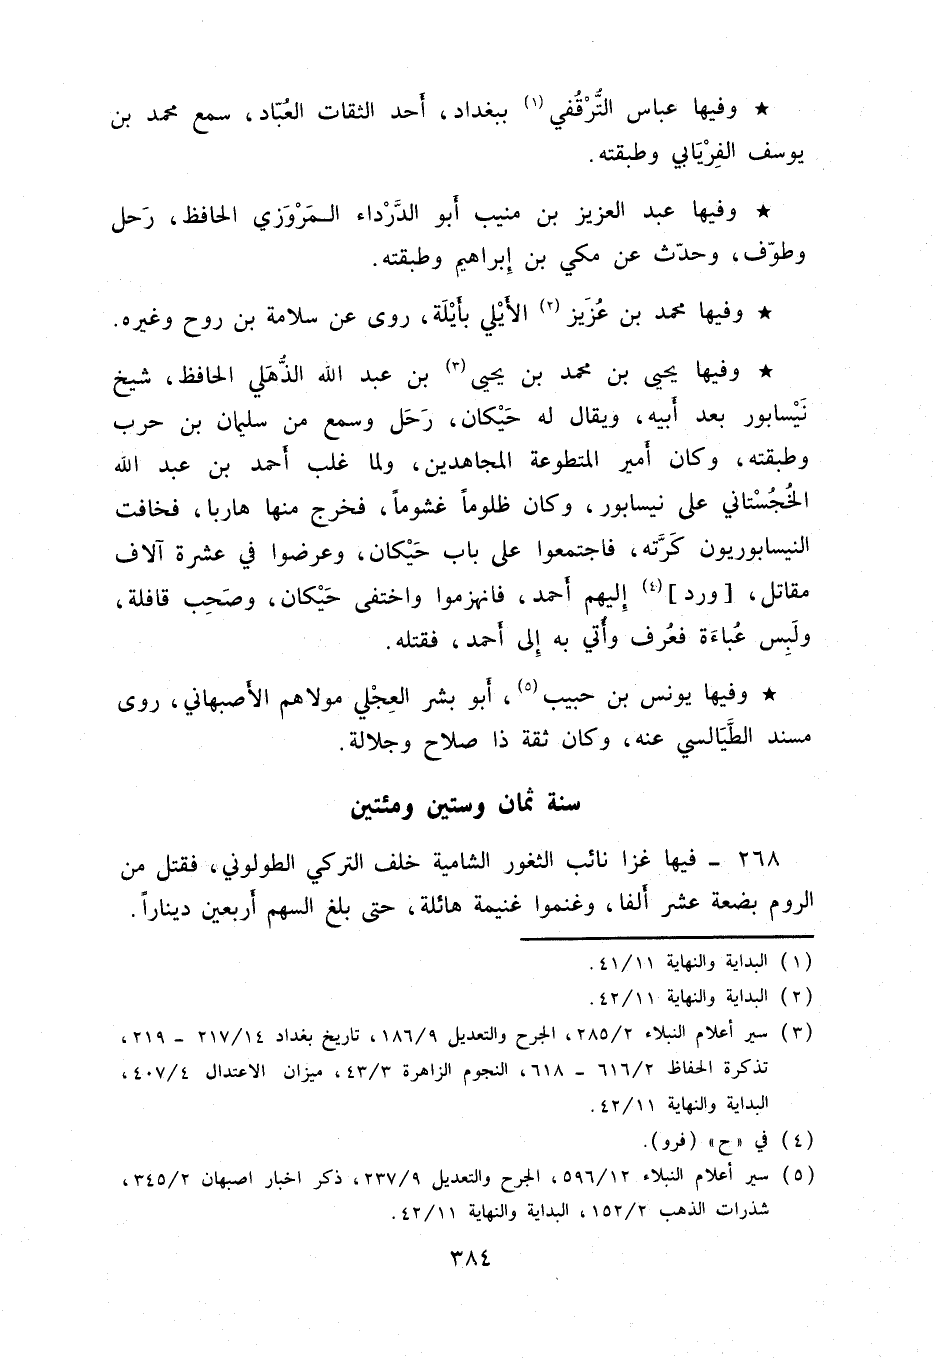 ★ وفيها عباس التُّرْقُفي(١) ببغداد، أَحد الثقات العُبّاد، سمع محمد بن
يوسف الفِرْيَابي وطبقته.
★ وفيها عبد العزيز بن منيب أَبو الدَّرْداء المَرْوَزي الحافظ، رَحل
وطوّف، وحدّث عن مكي بن إِبراهيم وطبقته.
★ وفيها محمد بن عُزَيز(٢) الأَيْلي بأَيْلَة، روى عن سلامة بن روح وغيره.
★ وفيها يحيى بن محمد بن يحيى(٣) بن عبد الله الذُّهَلي الحافظ، شيخ
نَيْسابور بعد أَبيه، ويقال له حَيْكان، رَحَل وسمع من سليمان بن حرب
وطبقته، وكان أَمير المتطوعة المجاهدين، ولما غلب أَحمد بن عبد الله
الخُجُسْتاني على نيسابور، وكان ظلوماً غشوماً، فخرج منها هاربا، فخافت
النيسابوريون كَرَّته، فاجتمعوا على باب حَيْكان، وعرضوا في عشرة آلاف
مقاتل، [ورد](٤) إِليهم أَحمد، فانهزموا واختفى حَيْكان، وصَحِب قافلة،
ولَبِس عُباءَة فعُرف وأُتي به إِلى أَحمد، فقتله.
★ وفيها يونس بن حبيب(٥)، أَبو بشر العِجْلي مولاهم الأَصبهاني، روى
مسند الطَّيَالسي عنه، وكان ثقة ذا صلاح وجلالة.
سنة ثمان وستين ومئتين
٢٦٨ - فيها غزا نائب الثغور الشامية خلف التركي الطولوني، فقتل من
الروم بضعة عشر أَلفا، وغنموا غنيمة هائلة، حتى بلغ السهم أَربعين ديناراً.
(١) البداية والنهاية ٤١/١١.
(٢) البداية والنهاية ٤٢/١١.
(٣) سير أعلام النبلاء ٢٨٥/٢، الجرح والتعديل ١٨٦/٩، تاريخ بغداد ٢١٧/١٤ - ٢١٩،
تذكرة الحفاظ ٦١٦/٢ - ٦١٨، النجوم الزاهرة ٤٣/٣، ميزان الاعتدال ٤٠٧/٤،
البداية والنهاية ٤٢/١١.
(٤) في «ح» (فرو).
(٥) سير أعلام النبلاء ٥٩٦/١٢، الجرح والتعديل ٢٣٧/٩، ذكر اخبار اصبهان ٣٤٥/٢،
شذرات الذهب ١٥٢/٢، البداية والنهاية ٤٢/١١.
٣٨٤